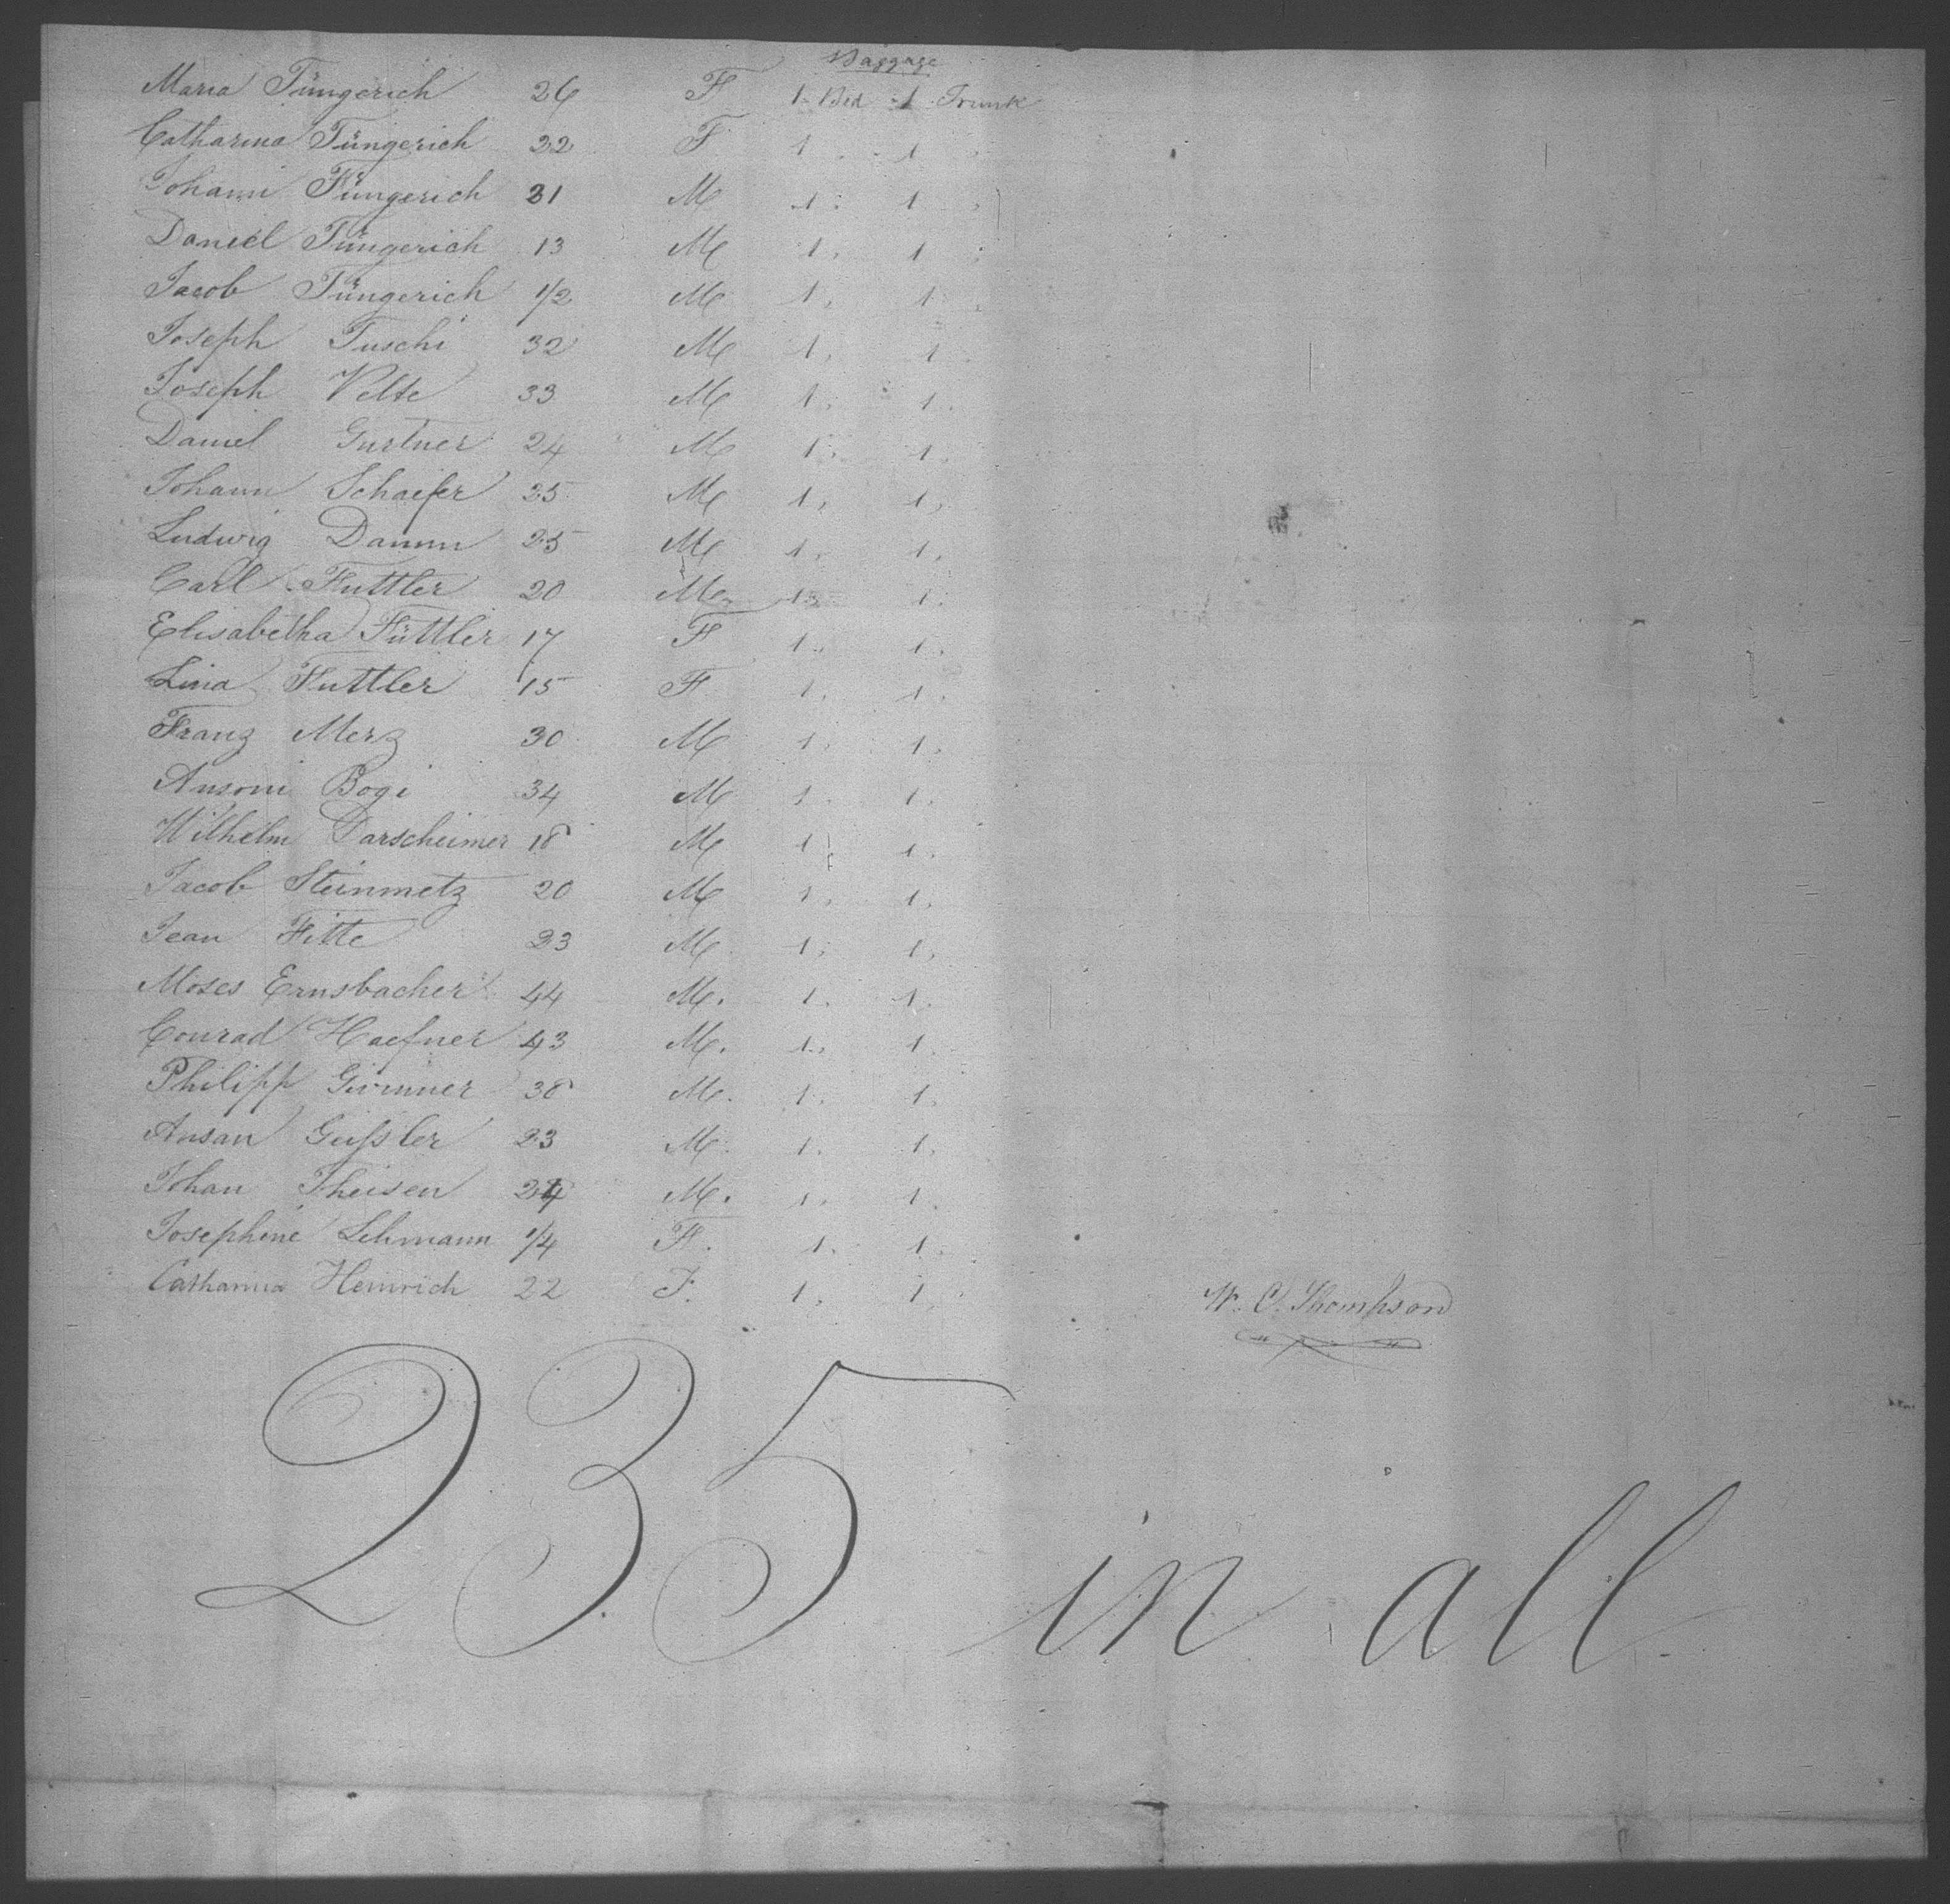 Baggage
Maria Füngerich 26 F 1 Bed 1 Trunk
Catharina Füngerich 22 F 1 1
Johann Füngerich 21 M 1 1
Daniel Füngerich 13 M 1 1
Jacob Füngerich 1/2 M 1 1
Joseph Tuschi 32 M 1 1
Joseph Velte 33 M 1 1
Daniel Gurtner 24 M 1 1
Johann Schaefer 25 M 1 1
Ludwig Damm 25 M 1 1
Carl Futtler 20 M 1 1
Elisabetha Füttler 17 F 1 1
Lina Futtler 15 F 1 1
Franz Merz 30 M 1 1
Ansoni Bogi 34 M 1 1
Wilhelm Darscheimer 18 M 1 1
Jacob Steinmetz 20 M 1 1
Jean Fitte 23 M 1 1
Moses Ernsbacher 44 M. 1 1
Conrad Haefner 43 M. 1 1
Philipp 38 M. 1 1
Ansan Geissler 23 M. 1 1
Johan Theisen 24 M. 1 1
Josephine Lehmann 1/4 F. 1 1
Catharina Heinrich 22 F. 1 1
W. C. Thompson
235 in all